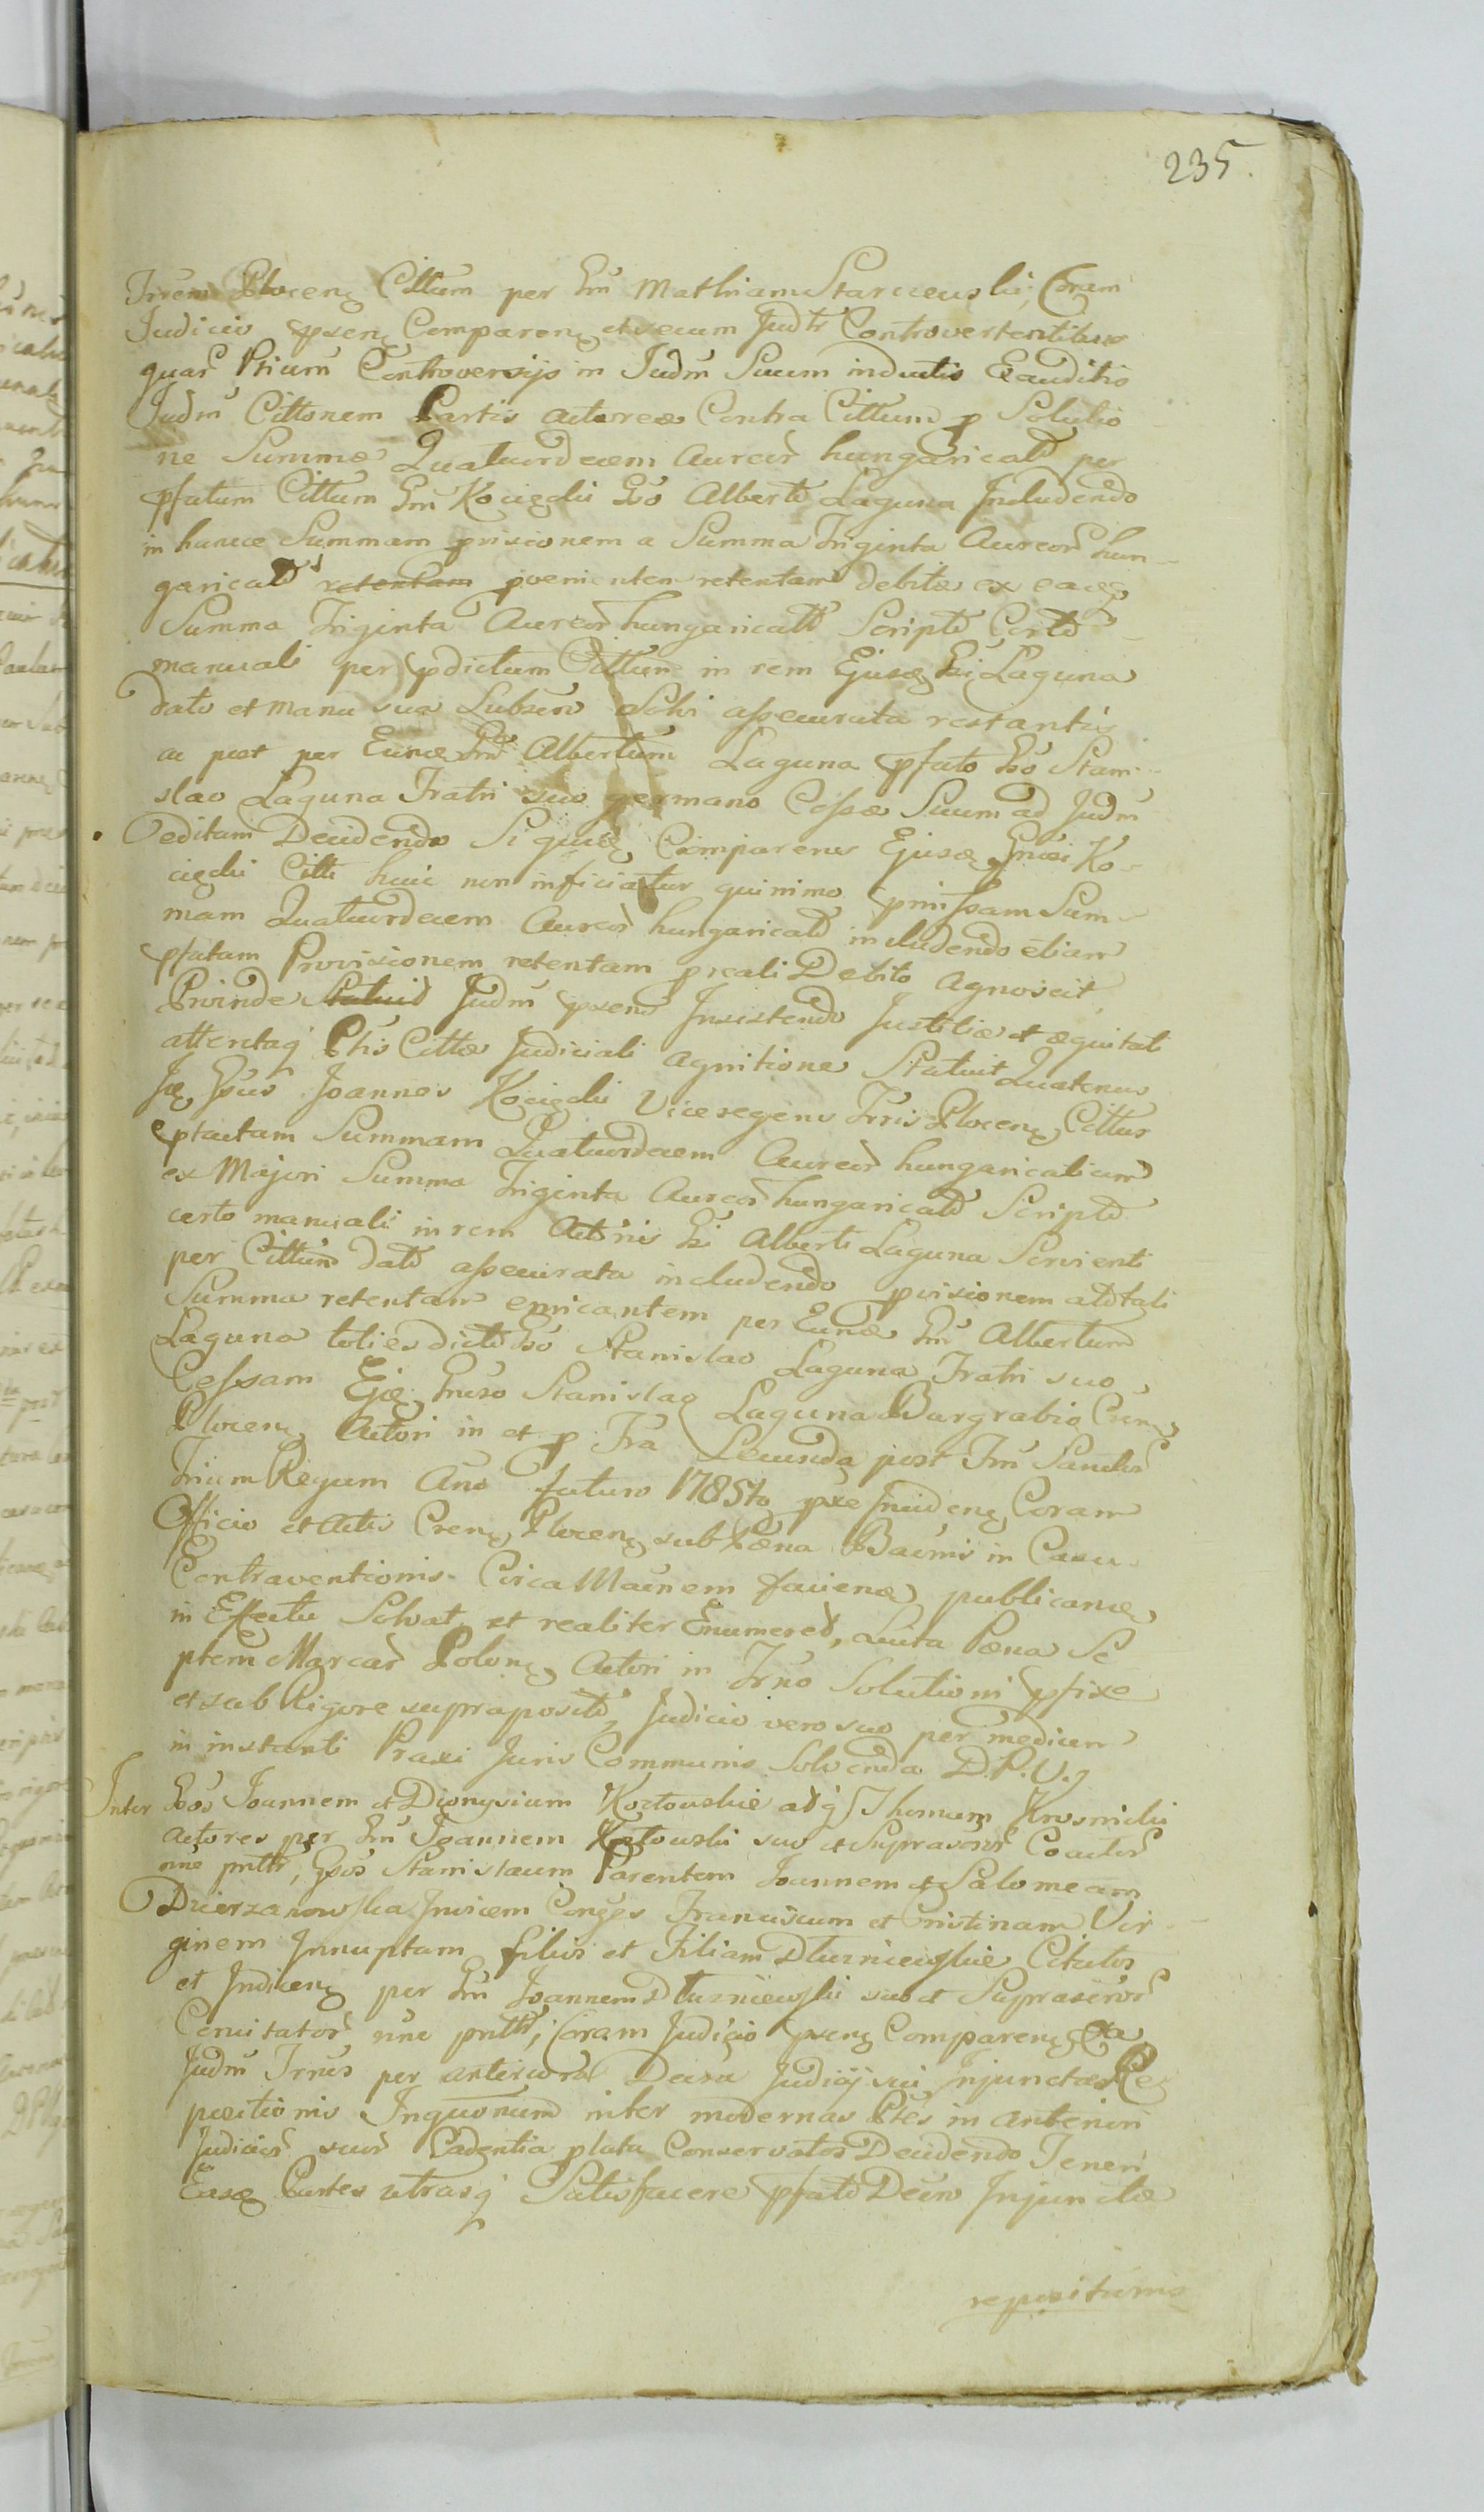 235.
Trrem Plocens Cittum per Gm Mathiam Starczewski, Coram
Judicio pxens Comparens et secum Judtr Controvertentibus
quar Ptium Controversijs in Judm Suum inductis Exauditis
Judm Cittonem Partis actoreæ Contra Cittum p Solutio
ne Summæ Quatuordecem Aureor hungaricald per
pfatum Cittum Gm Kocięcki Gso Alberto Laguna Includendo
in hancce Summam prisionem a Summa Triginta Aureor hun-
garicald retentam pvenienten retentam debitæ ex eaqz
Summa Triginta Aureor hungaricald Scripto Certo
manuali per pdictum Cittum in rem Ejusd Gsi Laguna
dato et manu sua Subscro Solvi assecurata restantis
ac post per Eund Gm Albertum Laguna pfato Gso Stani-
slao Laguna Fratri suo germano Cessæ Suum ad Judm
editam Decidendo Siquid Comparens Ejusd Gnrosi Ko-
cięcki Citti huic non inficiatur quinimo pmissam Sum-
mam Quatuordecem Aureor hungaricald includendo etiam
pfatam Provisionem retentam p reali Debito agnoscit
Proinde Statuit Judm pxens Insistendo Justitiæ et æquitati
attentaq Ptis Cittæ Judiciali agnitione Statuit Quatenus
Idem Gsus Joannes Kocięcki Viceregens Trris Plocens Cittus
ptactam Summam Quatuordecem Aureor hungaricalium
ex Majori Summa Triginta Aureor hungaricald Scripto
certo manuali in rem Actoris Gsi Alberti Laguna Servienti
per Cittum dato assecurata includendo prisionem ad tali
Summa retentam emicantem per Eund Gm Albertum
Laguna toties dicto Gso Stanislao Laguna Fratri suo
Cessam Eid Gnroso Stanislao Laguna Burgrabio Crens
Plocens Actori in et p Fra Secunda post Fm Sanctor
Trium Regum Ano futuro 1785to pxe Incidens Coram
Officio et Actis Crens Plocens sub Pæna Banni in Casu
Contraventionis Circa Manem faciend publicand
in Effectu Solvat et realiter Enumeret, Luita Pæna Se
ptem Marcar Polons Actori in Trno Solutioni pfixo
et sub Rigore supraposito, Judicio vero suo per medium
in instanti Praxi Juris Communis Solvenda D.P.V.j
Inter Gsos Joannem et Dionysium Kozłowskie adq Thomam Krosnicki
Actores per Gm Joannem Kozłowski suo et Suprascror Coactor
nne pntr, Gsos Stanislaum Parentem Joannem et Salomeam
Dzierzanowska Invicem Conges Franciscum et Cristinam Vir
ginem Innuptam filios et Filiam Dłuzniewskie Citatos
et Indicens per Gm Joannem Dłuzniewski suo et Suprascror
Concitator nne pntr, Coram Judicio pxens Comparens Ea
Judm Trrus per anteriora Decra Judicij sui Injunctæ Re
positionis Inquonum inter modernas Ptes in anteriori
Judicior suor Cadentia plata Conservatos Decidendo Teneri
Easd Partes utrasq Satisfacere pfato Decro Injunctæ
repositionis